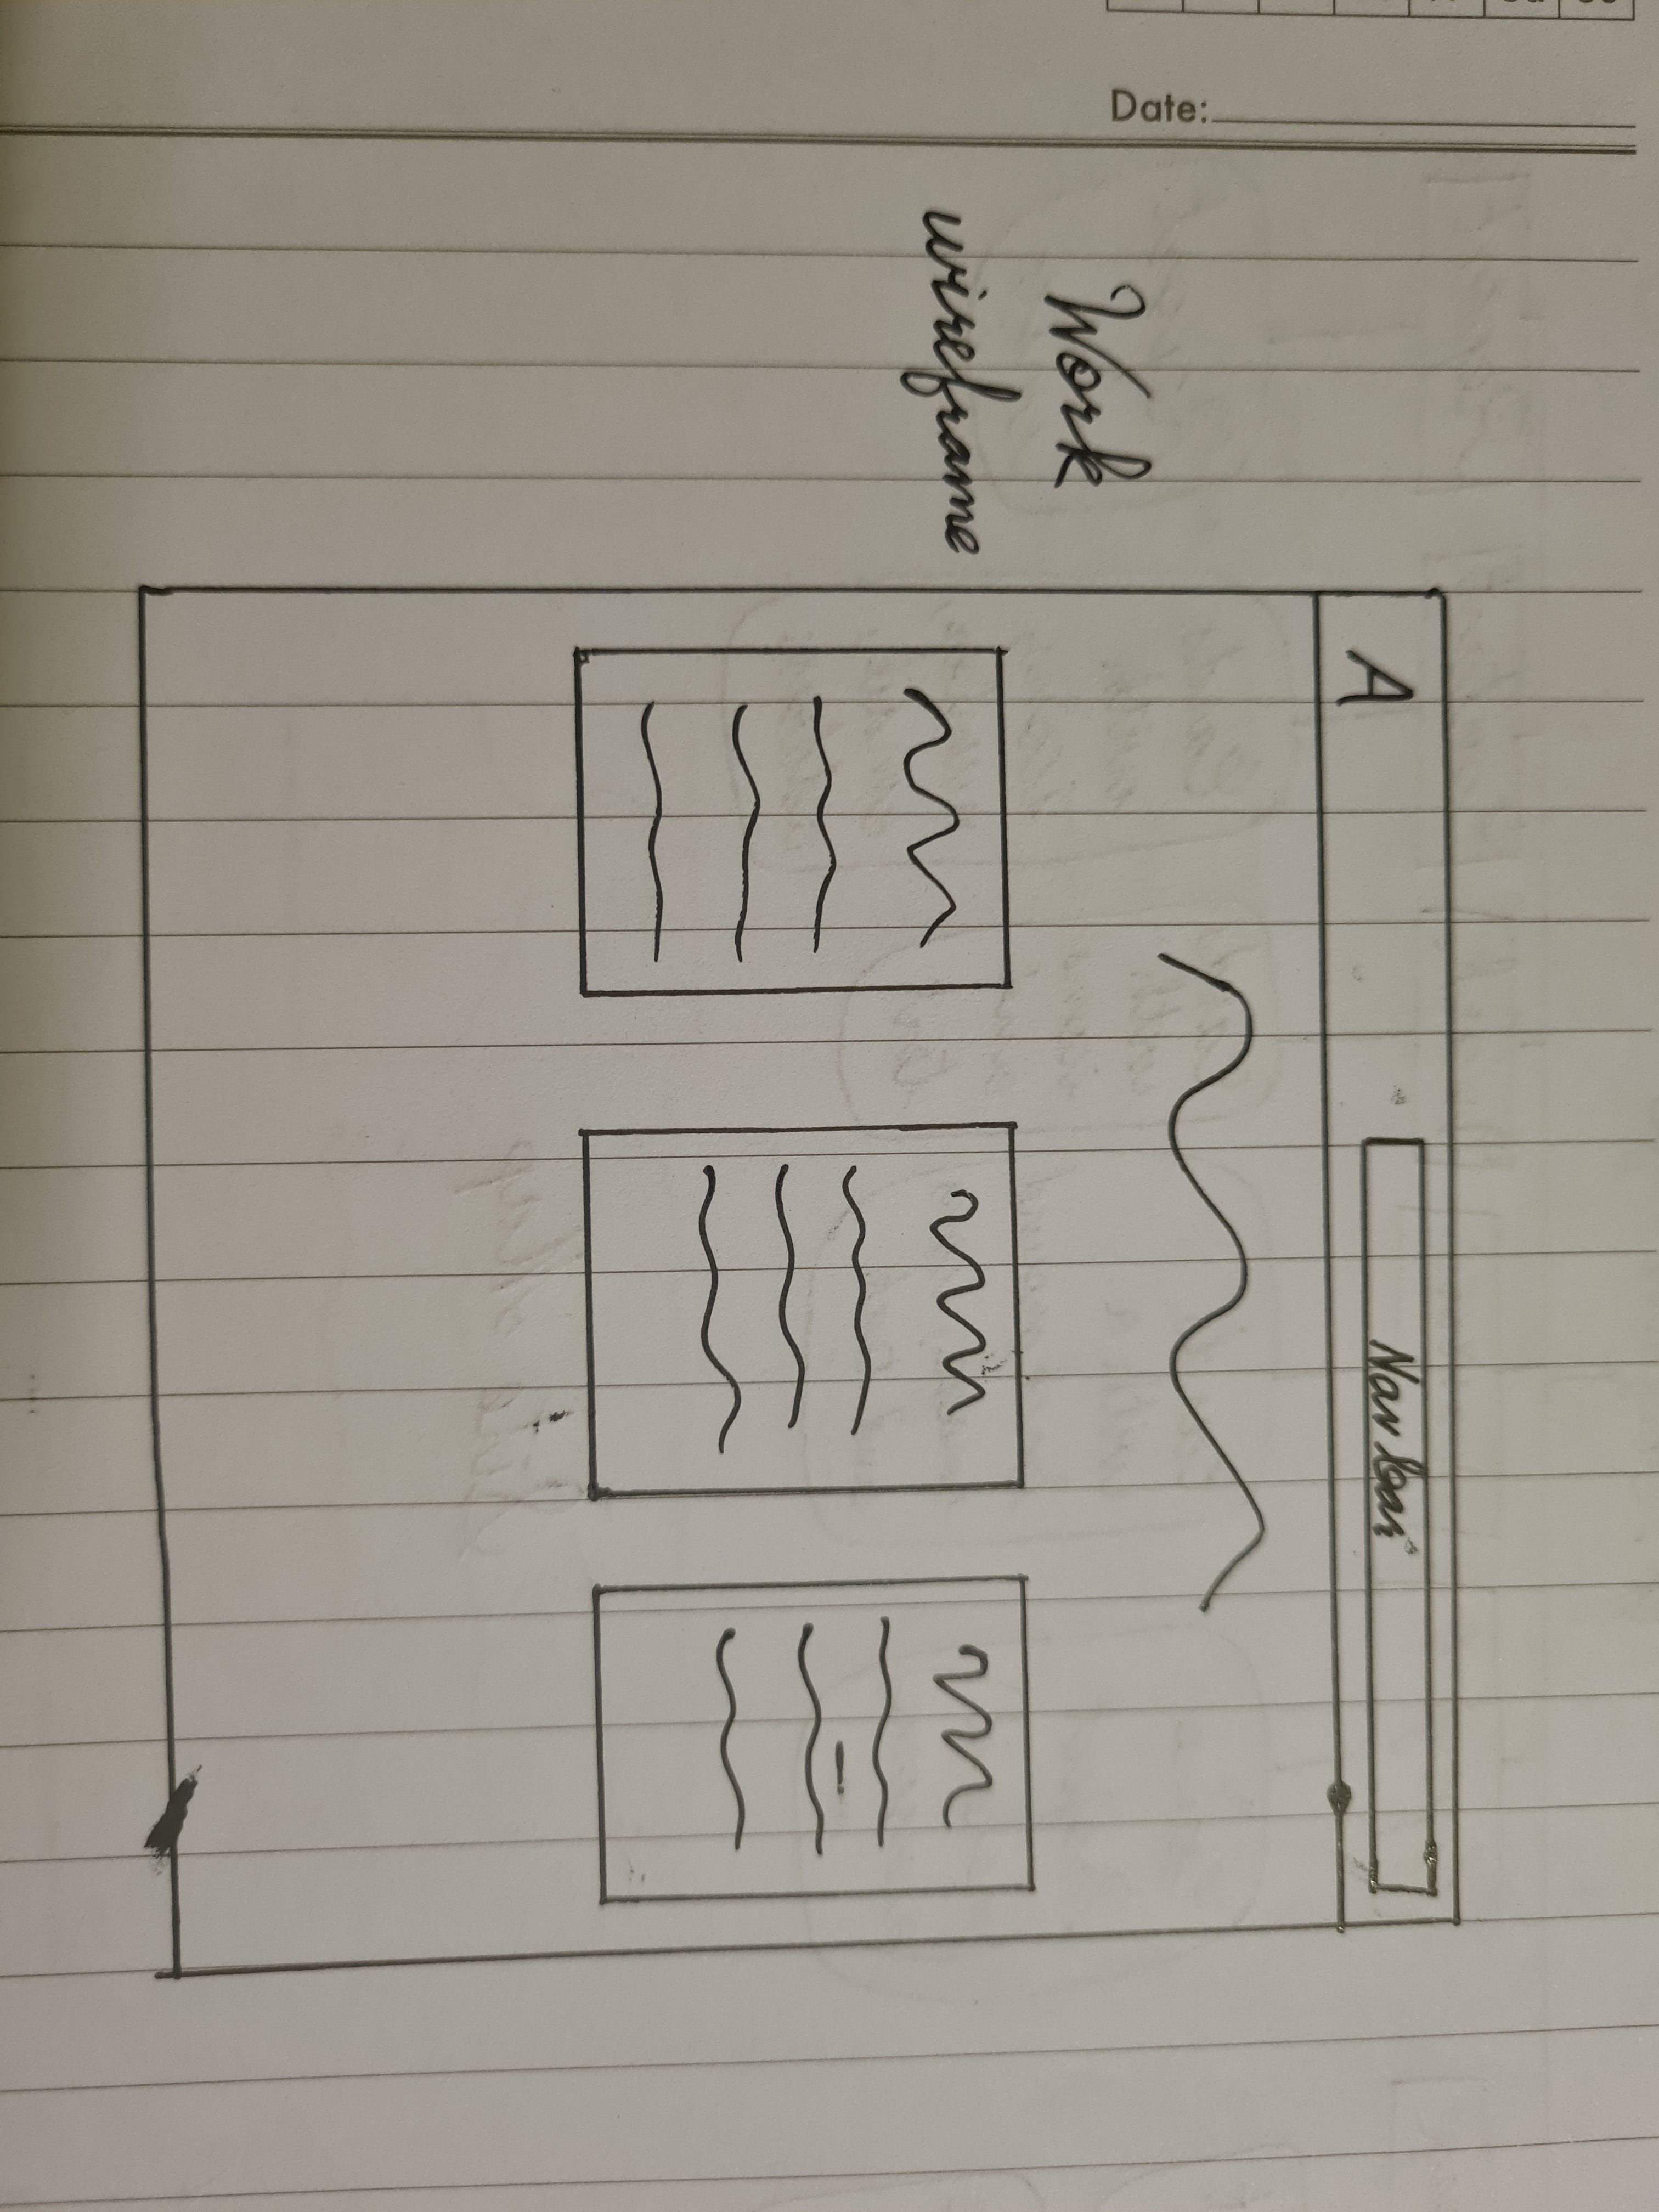 Date:
Work
wireframe
A
Nav bar